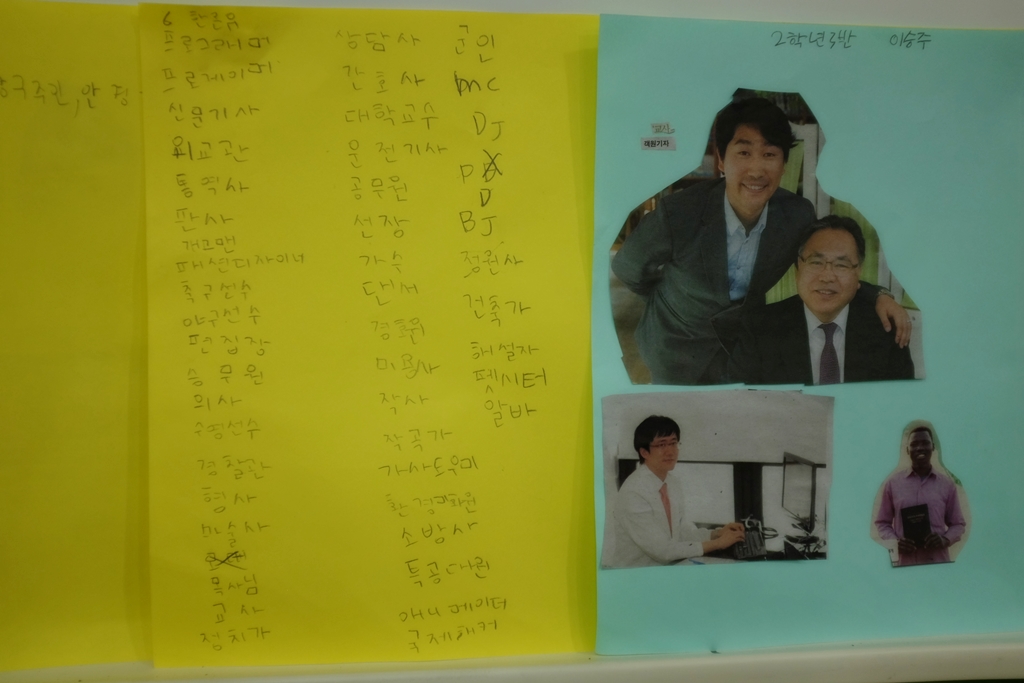 6 한른유
프로그래머
프로게이머
신문기사
외교관
통역사
판사
개그맨
패션디자이너
축구선수
야구선수
편집장
승무원
의사
수영선수
경찰관
형사
마술사
목사님
교사
정치가
상담사
간호사
대학교수
운전기사
공무원
선장
가수
댄서
경호원
미용사
작사
작곡가
가사도우미
환경미화원
소방사
특공대원
애니메이터
국제해커
군인
MC
DJ
PD
BJ
정원사
건축가
해설자
펫시터
알바
2학년 3반 이승주
잭원기자